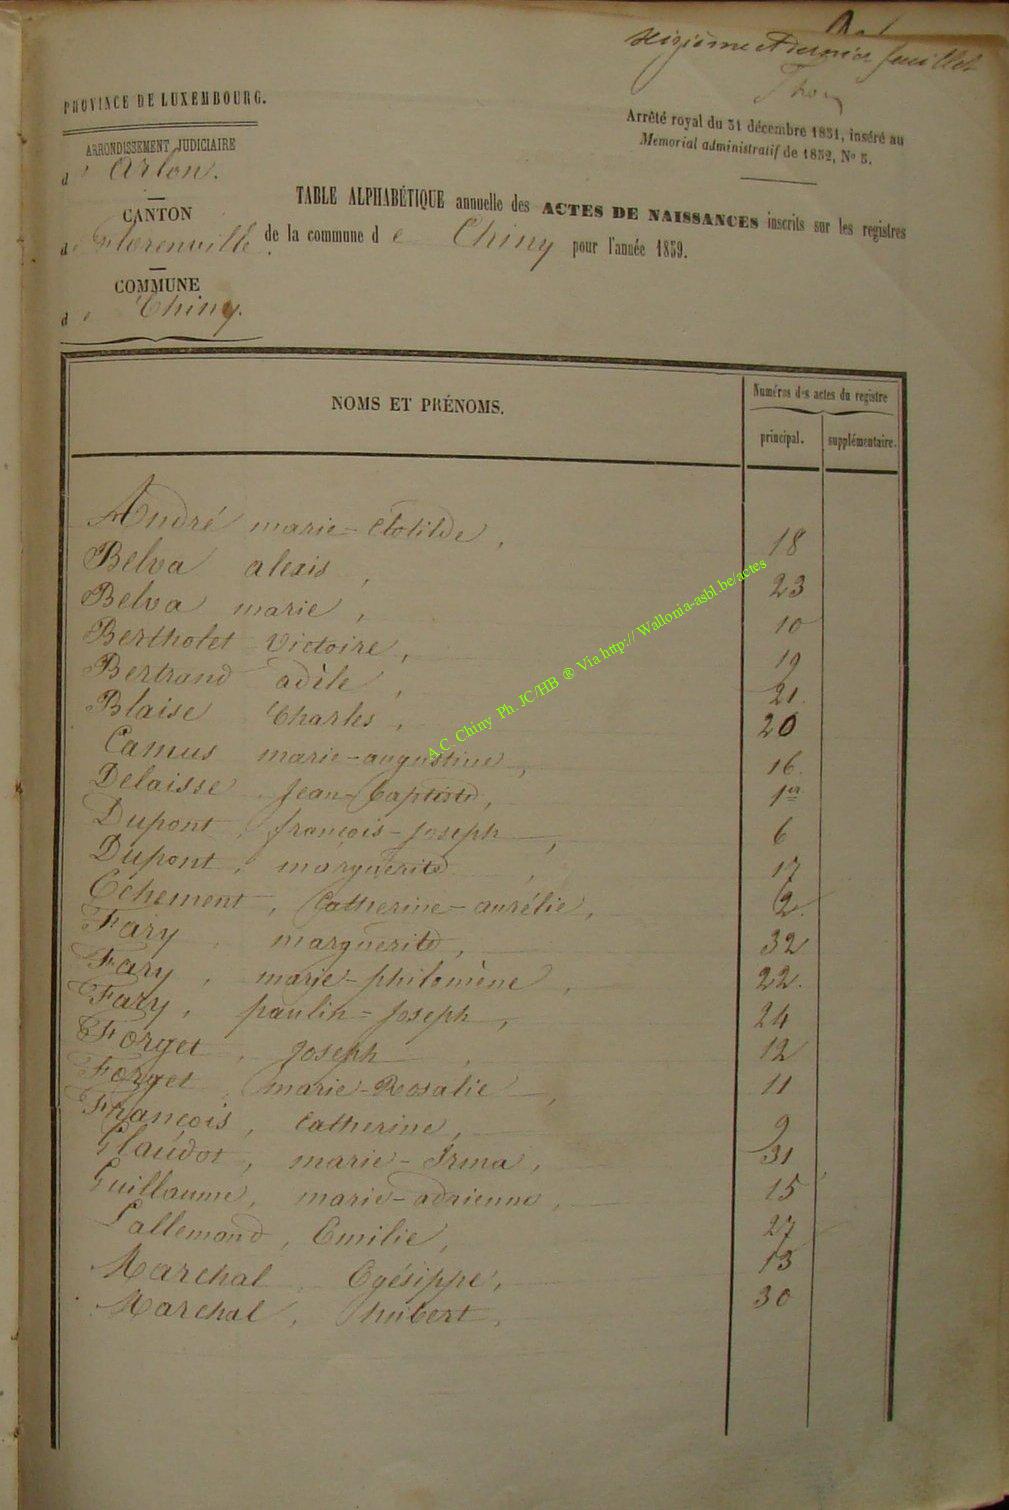 seizième et dernier feuillet
PROVINCE DE LUXEMBOURG.
Arrêté royal du 31 décembre 1831, inséré au
Memorial administratif de 1832, No 5.
ARRONDISSEMENT JUDICIAIRE
d' Arlon.
CANTON
de Florenville.
COMMUNE
de Chiny.
TABLE ALPHABÉTIQUE annuelle des ACTES DE NAISSANCES inscrits sur les registres
de la commune de Chiny pour l'année 1859.
NOMS ET PRÉNOMS.
Numéros des actes du registre
principal. supplémentaire.
André marie-Clotilde, 18
Belva alexis, 23
Belva marie, 10
Bertholet Victoire, 19
Bertrand adèle, 21.
Blaise Charles, 20
Camus marie-augustine, 16.
Delaisse Jean-Baptiste, 1er
Dupont, françois-Joseph, 6
Dupont, marguerite, 17
Echement, Catherine-aurélie, 2.
Fary, marguerite, 32
Fary, marie-philomène, 22.
Fary, paulin-Joseph, 24
Forget, Joseph, 12
Forget, marie-Rosalie, 11
François, Catherine, 9
Glaudot, marie-Irma, 31
Guillaume, marie-adrienne, 15
Lallemand, Emilie, 27
Marchal, Egésippe, 13
Marchal, hubert, 30
A.C. Chiny Ph. JC/HB ® Via http:// Wallonia-asbl.be/actes